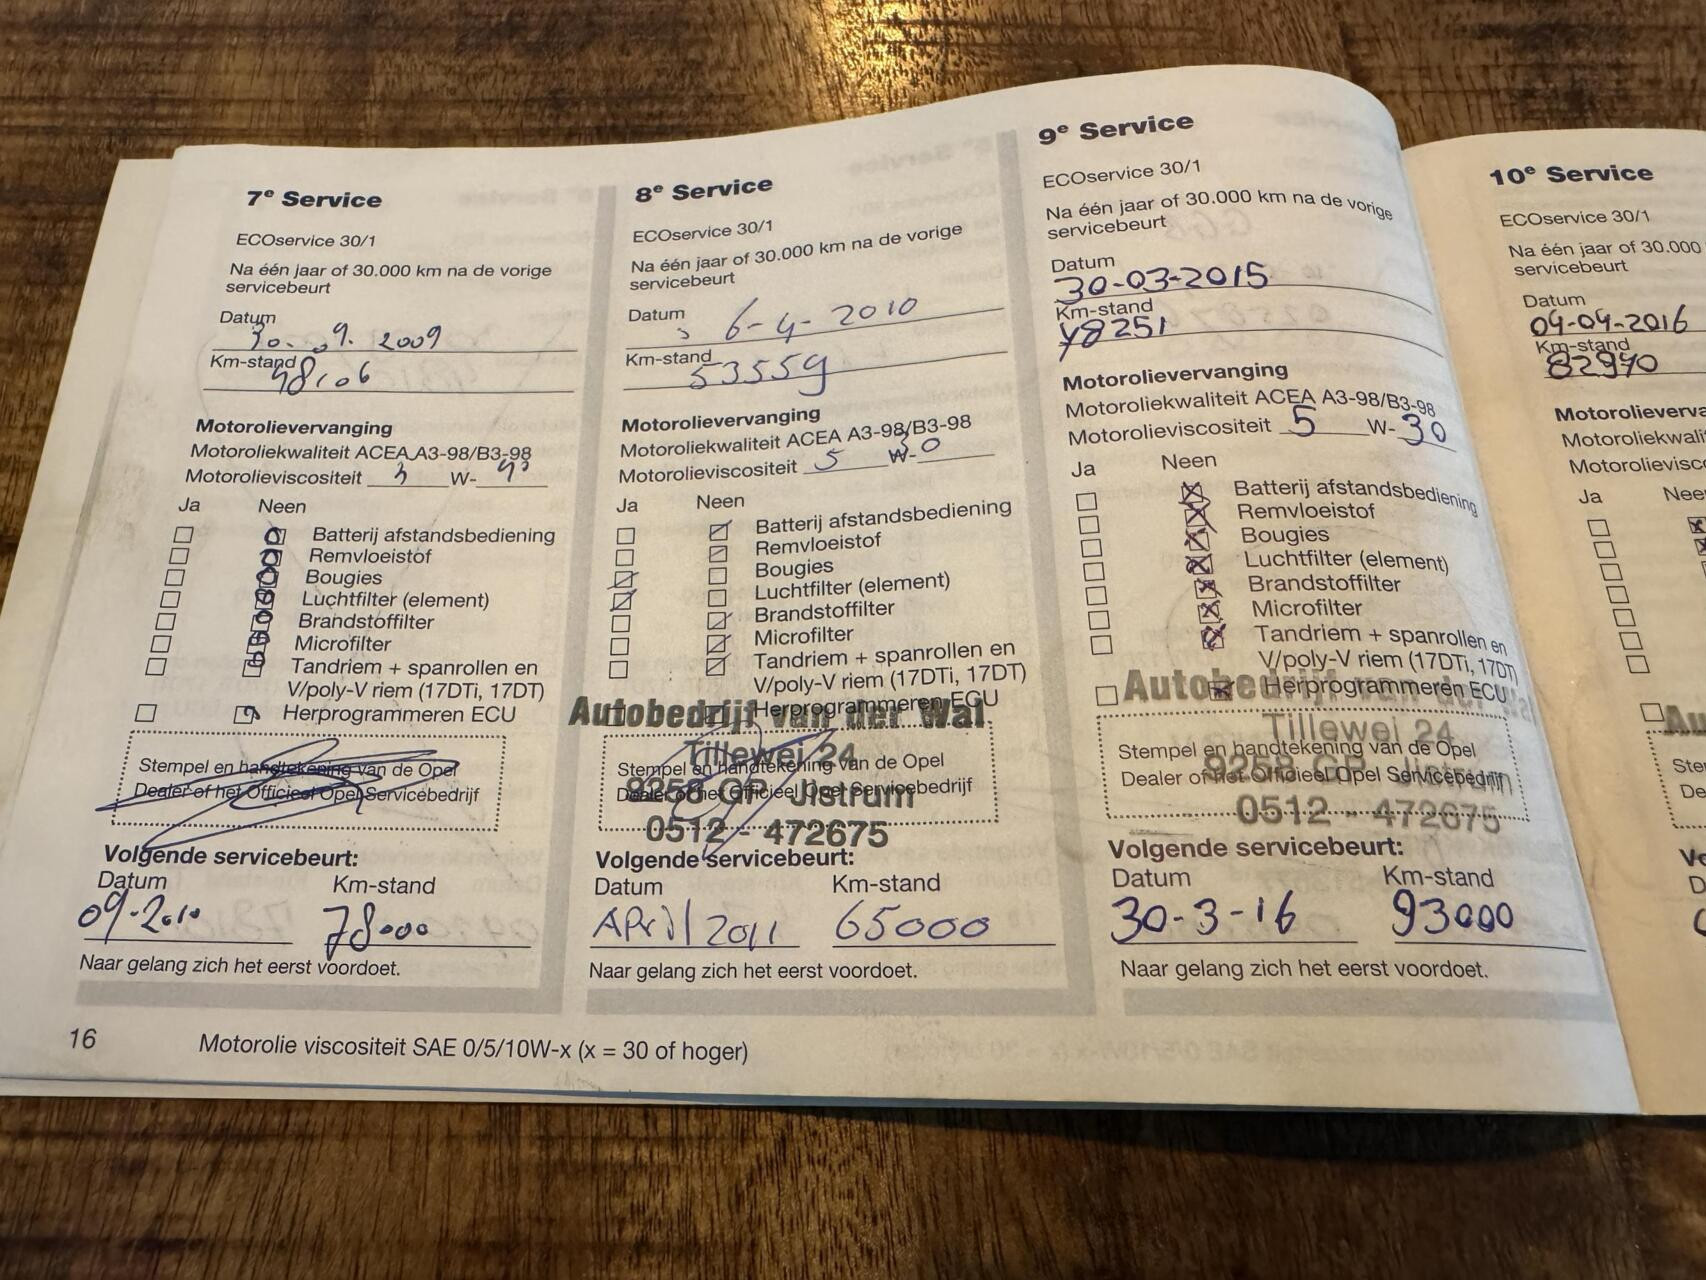 7e Service
ECOservice 30/1
Na één jaar of 30.000 km na de vorige
servicebeurt
Datum
30. 09. 2009
Km-stand
48106
Motorolievervanging
Motoroliekwaliteit ACEA A3-98/B3-98
Motorolieviscositeit W-
Ja Neen
Batterij afstandsbediening
Remvloeistof
Bougies
Luchtfilter (element)
Brandstoffilter
Microfilter
Tandriem + spanrollen en
V/poly-V riem (17DTi, 17DT)
Herprogrammeren ECU
Stempel en handtekening van de Opel
Dealer of het Officieel Opel Servicebedrijf
Volgende servicebeurt:
Datum Km-stand
09-2010 78000
Naar gelang zich het eerst voordoet.
16 Motorolie viscositeit SAE 0/5/10W-x (x = 30 of hoger)
8e Service
ECOservice 30/1
Na één jaar of 30.000 km na de vorige
servicebeurt
Datum 6-4-2010
Km-stand 53559
Motorolievervanging
Motoroliekwaliteit ACEA A3-98/B3-98
Motorolieviscositeit 5 W-30
Ja Neen
Batterij afstandsbediening
Remvloeistof
Bougies
Luchtfilter (element)
Brandstoffilter
Microfilter
Tandriem + spanrollen en
V/poly-V riem (17DTi, 17DT)
Herprogrammeren ECU
Autobedrijf van der Wal
Tillewei 24
Stempel en handtekening van de Opel
9258 GP Jistrum
Dealer of het Officieel Opel Servicebedrijf
0512 - 472675
Volgende servicebeurt:
Datum Km-stand
APril 2011 65000
Naar gelang zich het eerst voordoet.
9e Service
ECOservice 30/1
Na één jaar of 30.000 km na de vorige
servicebeurt
Datum
30-03-2015
Km-stand
78251
Motorolievervanging
Motoroliekwaliteit ACEA A3-98/B3-98
Motorolieviscositeit 5 W-30
Ja Neen
Batterij afstandsbediening
Remvloeistof
Bougies
Luchtfilter (element)
Brandstoffilter
Microfilter
Tandriem + spanrollen en
V/poly-V riem (17DTi, 17DT)
Herprogrammeren ECU
Autobedrijf van der Wal
Tillewei 24
Stempel en handtekening van de Opel
9258 GP Jistrum
Dealer of het Officieel Opel Servicebedrijf
0512 - 472675
Volgende servicebeurt:
Datum Km-stand
30-3-16 93000
Naar gelang zich het eerst voordoet.
10e Service
ECOservice 30/1
Na één jaar of 30.000
servicebeurt
Datum
04-04-2016
Km-stand
82940
Motorolieverva
Motoroliekwali
Motorolievisc
Ja Nee
Au
Ste
De
Vo
D